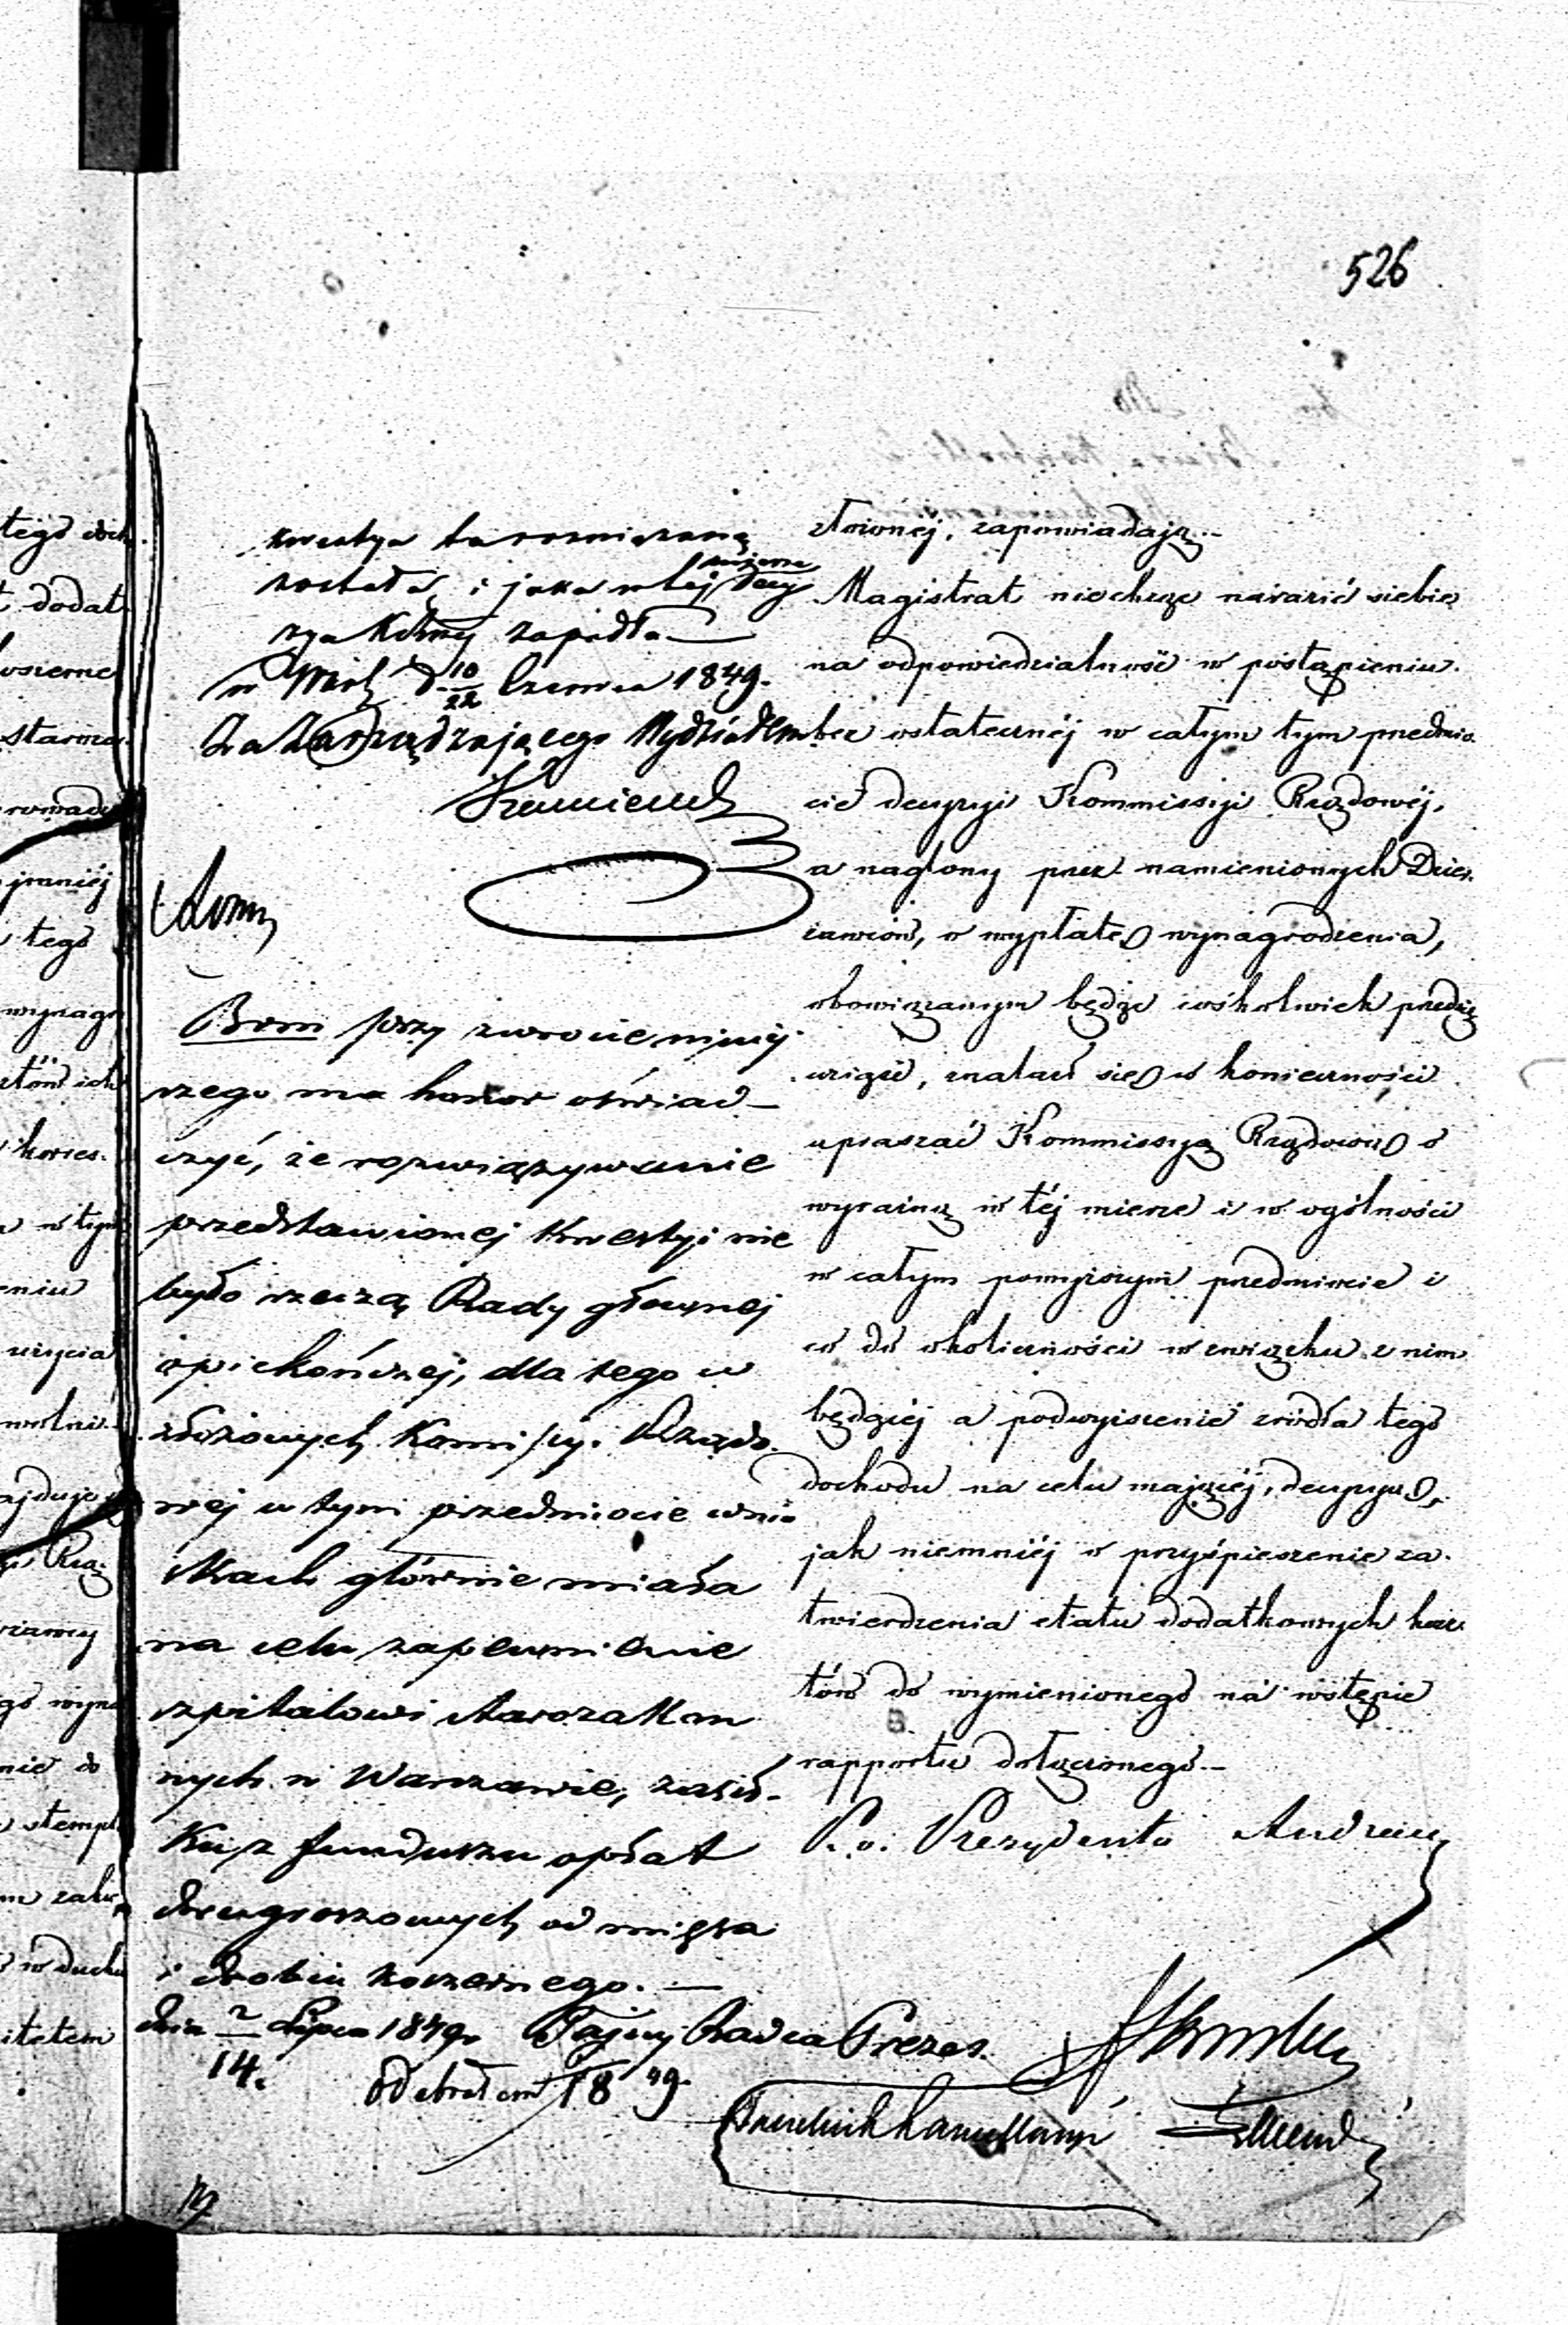 526
kwestya ta rozwiązaną
została, i jaka w tej mierze decy
zya Któréj zapadła —
w Warsz d. 10/22 Czerwca 1849.
Za Zarządzającego Wydziałem
Bom przy zwrocie niniej
szego ma honor oświad-
czyć, że rozwiązywanie
przedstawionej Kwestyi nie
było rzeczą Rady głównej
opiekuńczej, dla tego w
złożonych Komissyi Rządo-
wej w tym przedmiocie wnio
skach głównie miała
na celu zapewnienie
szpitalowi Starozakon
nych w Warszawie, zasił-
Ku z funduszu opłat
dwugroszowych od mięsa
i drobiu koszernego. —
dnia 2/14 Lipca 1849 r. Tajny Radca Prezes.
odebrałem 18 49
złownej, zapowiadają.—
Magistrat niechcąc narazić siebie
na odpowiedzialność w postąpieniu
bez ostatecznéj w całym tym przedmio
cie decyzyi Kommissyi Rządowéj,
a naglony przez namienionych Dzier
żawców, o wypłatę wynagrodzenia,
obowiązanym będąc cośkolwiek przedsię
wziąść, znalazł się w konieczności
upraszać Kommissyą Rządową o
wyraźną w téj mierze i w ogólności
w całym powyższym przedmiocie i
co do okoliczności w związku z nim
będącéj a podwyższenie źródła tego
dochodu na celu mającéj, decyzyę,
jak niemniéj o przyśpieszenie za-
twierdzenia etatu dodatkowych kosz
tów do wymienionego na wstępie
rapportu dołączonego.—
P. o. Prezydenta Andrault